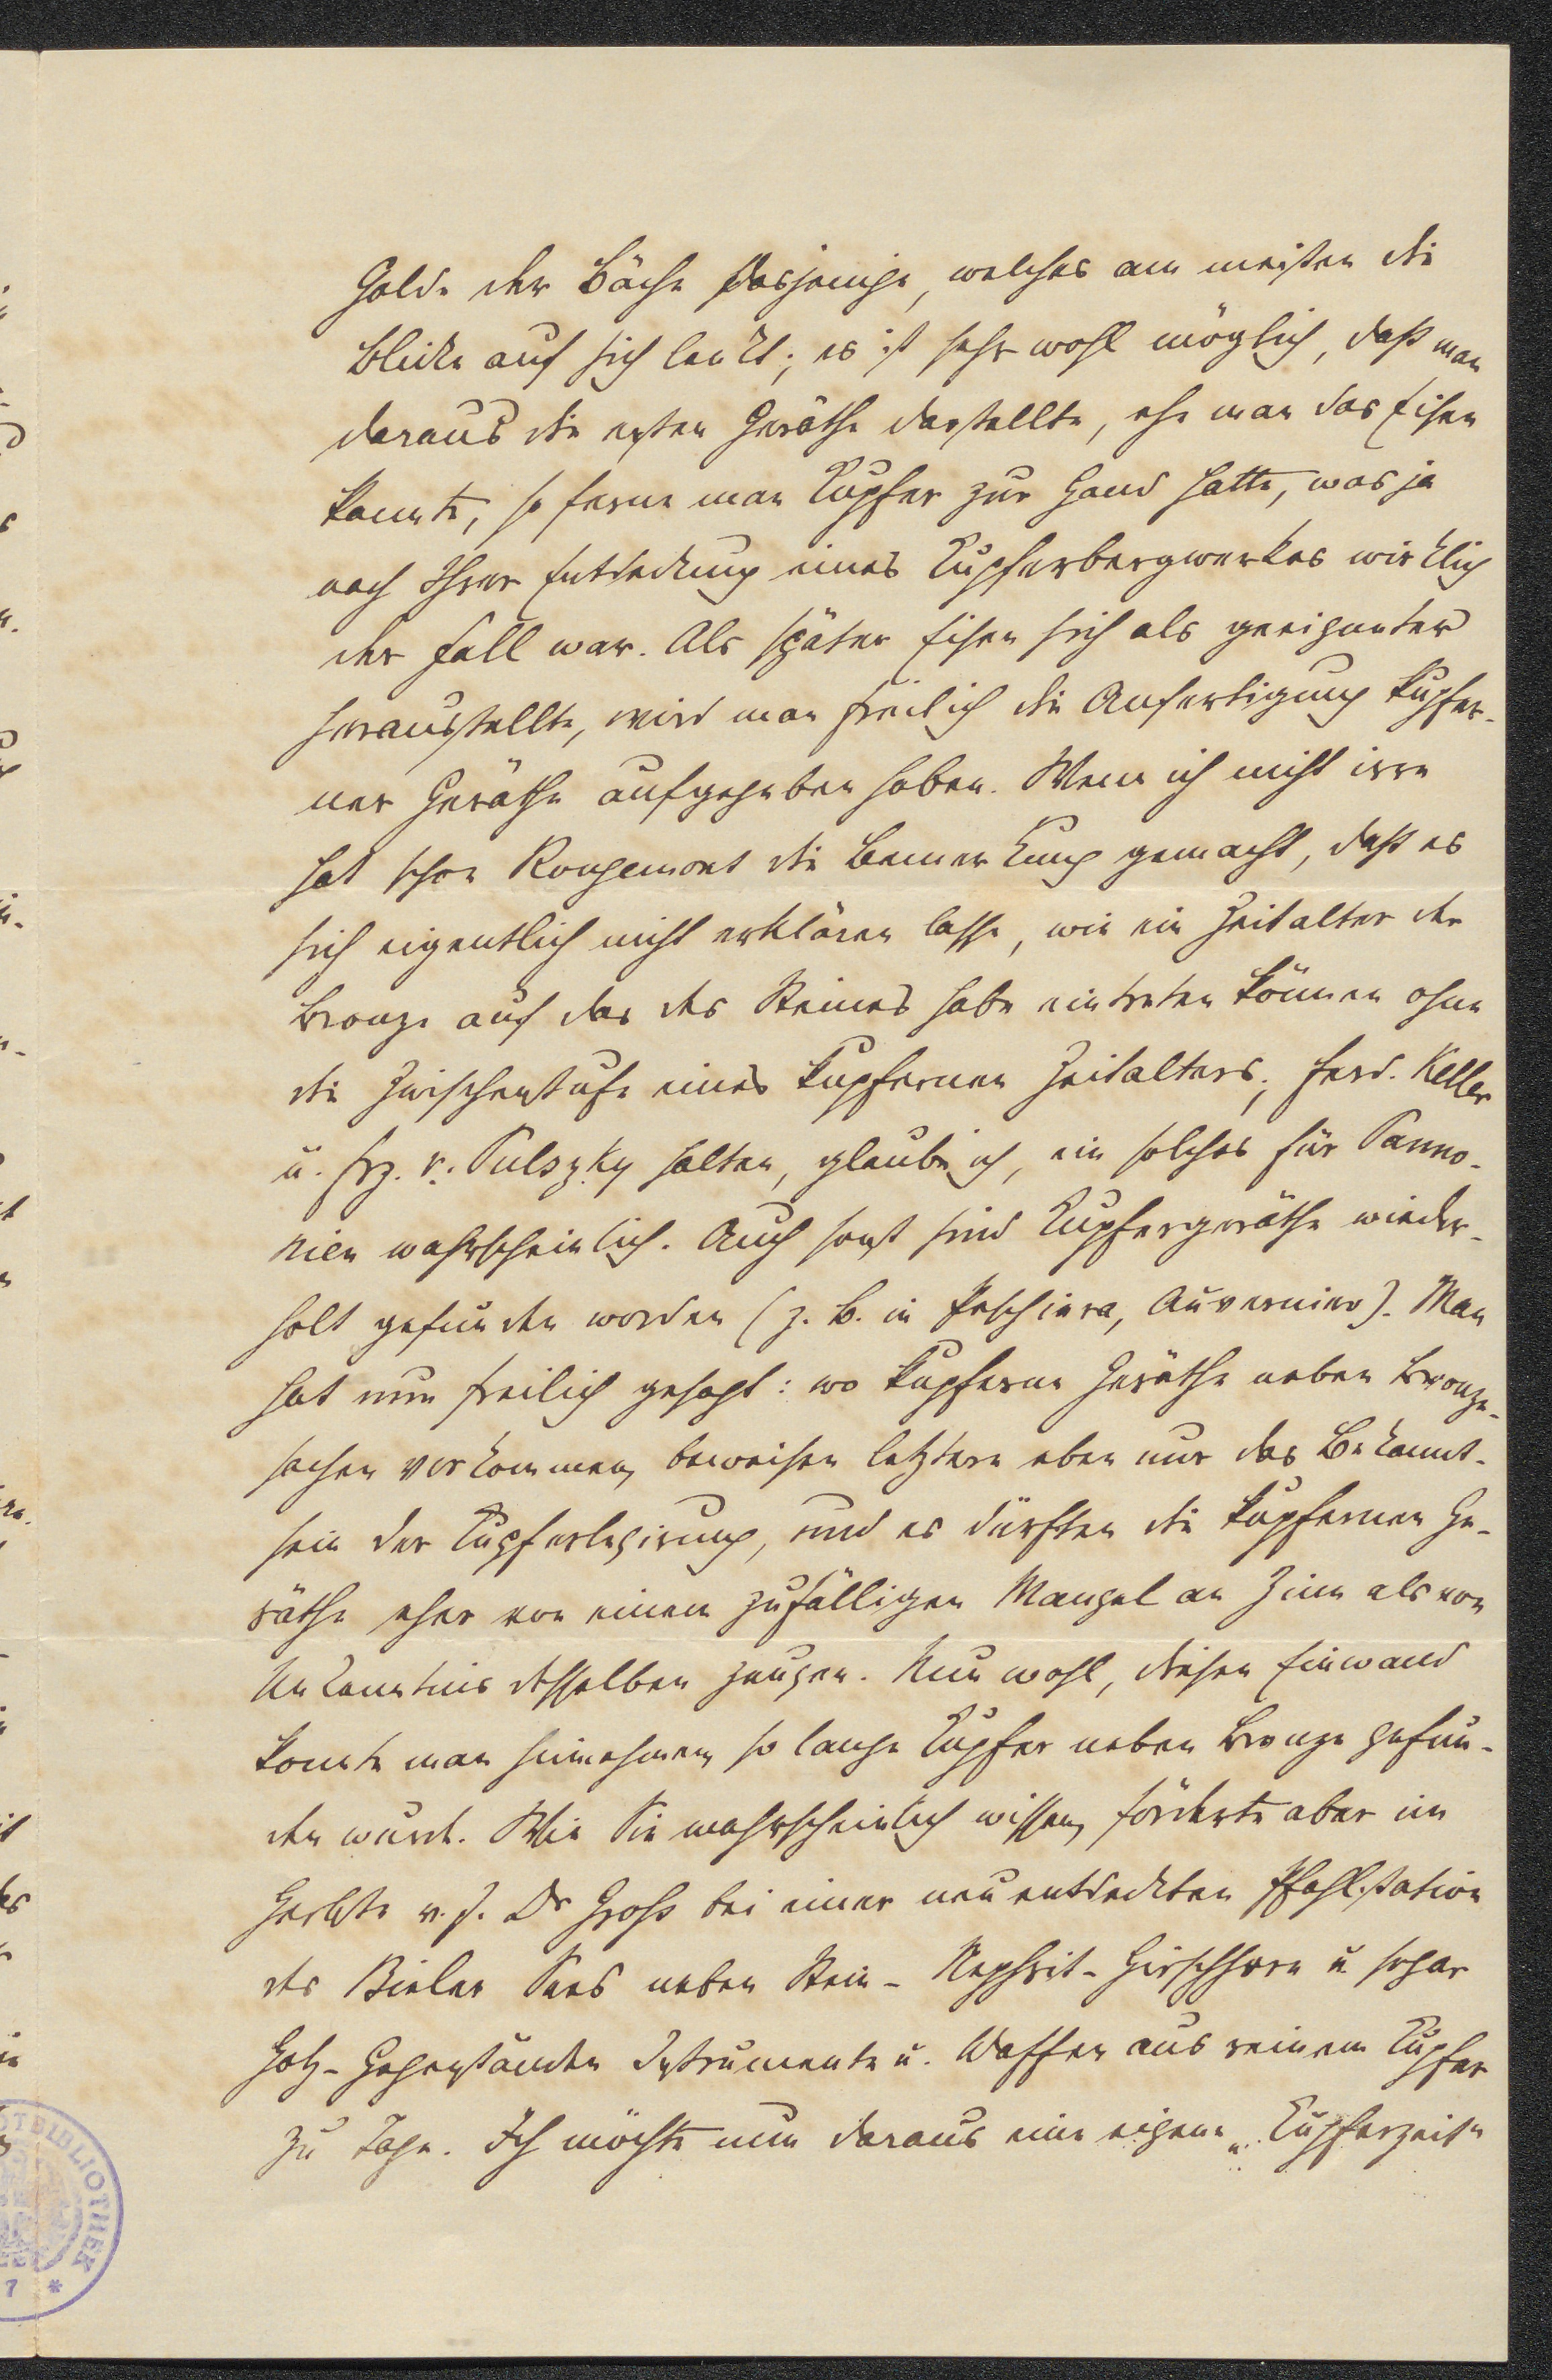 Golde der Bäche dasjenige, welches am meisten die
Blicke auf sich lenkt; es ist sehr wohl möglich, daß man
daraus die ersten Geräthe darstellte, ehe man das Eisen
kannte, so ferne man Kupfer zur Hand hatte, was ja
nach Ihrer Entdeckung eines Kupferbergwerkes wirklich
der Fall war. Als später Eisen sich als geeigneter
herausstellte, wird man freilich die Anfertigung kupfer-
ner Geräthe aufgegeben haben. Wenn ich nicht irre
hat schon Rougemont die Bemerkung gemacht, daß es
sich eigentlich nicht erklären lasse, wie ein Zeitalter der
Bronze auf das des Steines habe eintreten können ohne
die Zwischenstufe eines kupfernen Zeitalters; Ferd. Keller
u. Frz. v. Pulszky halten, glaube ich, ein solches für Panno-
nien wahrscheinlich. Auch sonst sind Kupfergeräthe wieder-
holt gefunden worden (z. B. in Peschiera, Auvernier). Man
hat nun freilich gesagt: wo kupferne Geräthe neben Bronze-
sachen vorkommen, beweisen letztere eben nur das Bekannt-
sein der Kupferlegirung, und es dürften die kupfernen Ge-
räthe eher von einem zufälligen Mangel an Zinn als von
Unkenntnis desselben zeugen. Nun wohl, diesen Einwand
konnte man hinnehmen so lange Kupfer neben Bronze gefun-
den wurde. Wie Sie wahrscheinlich wissen, förderte aber im
Herbste v. J. Dr Groß bei einer neu entdeckten Pfahlstation
des Bieler Sees neben Stein- Nephrit- Hirschhorn u sogar
Holz-Gegenständen Instrumente u. Waffen aus reinem Kupfer
zu Tage. Ich möchte nun daraus eine eigene „Kupferzeit“